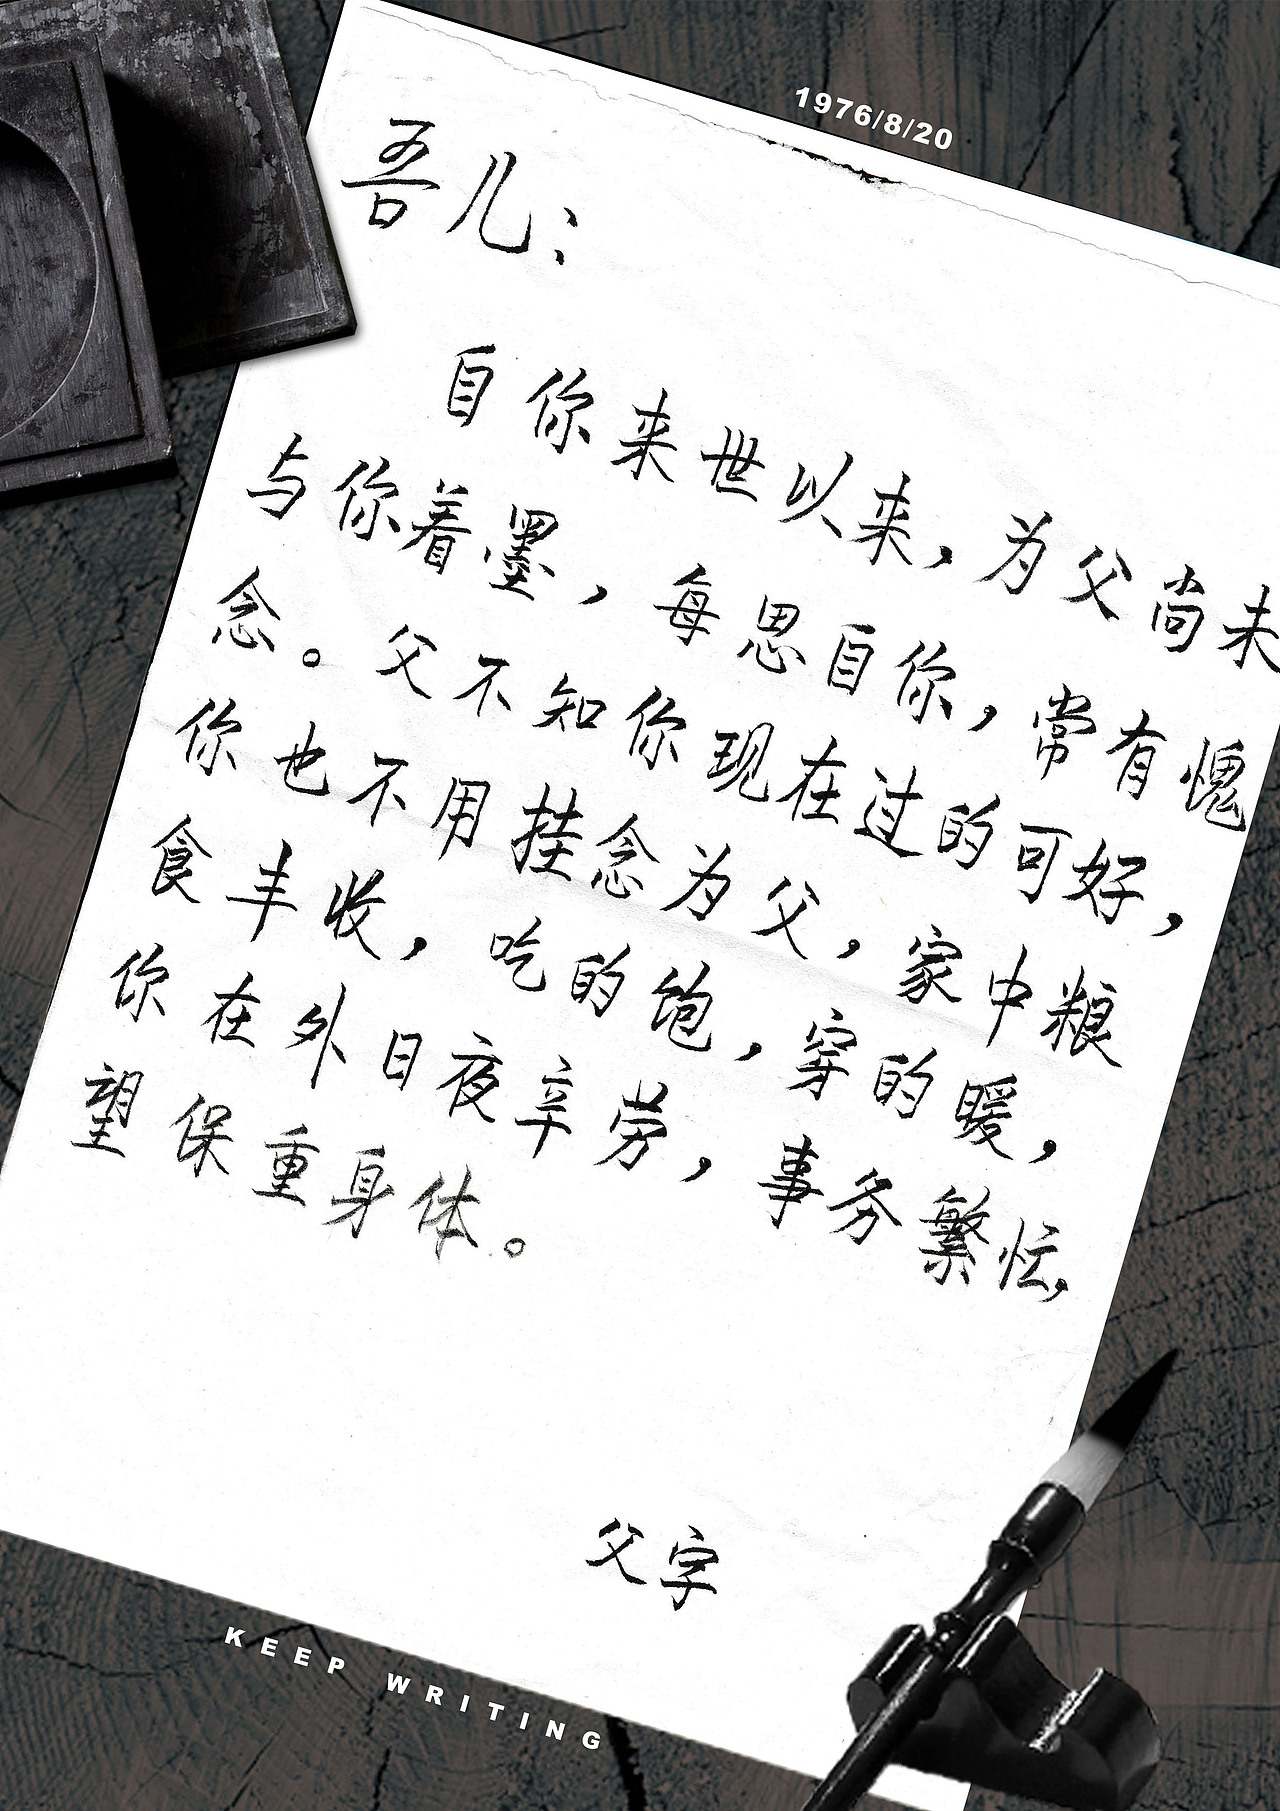 1976/8/20
吾儿：
自你来世以来，为父尚未
与你着墨，每思自你，常有愧
念。父不知你现在过的可好，
你也不用挂念为父，家中粮
食丰收，吃的饱，穿的暖，
你在外日夜辛劳，事务繁忙，
望保重身体。
父字
KEEP WRITING